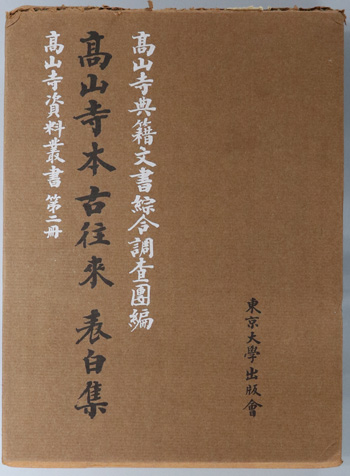 高山寺典籍文書綜合調査團編
高山寺本古往來 表白集
高山寺資料叢書 第二册
東京大學出版會